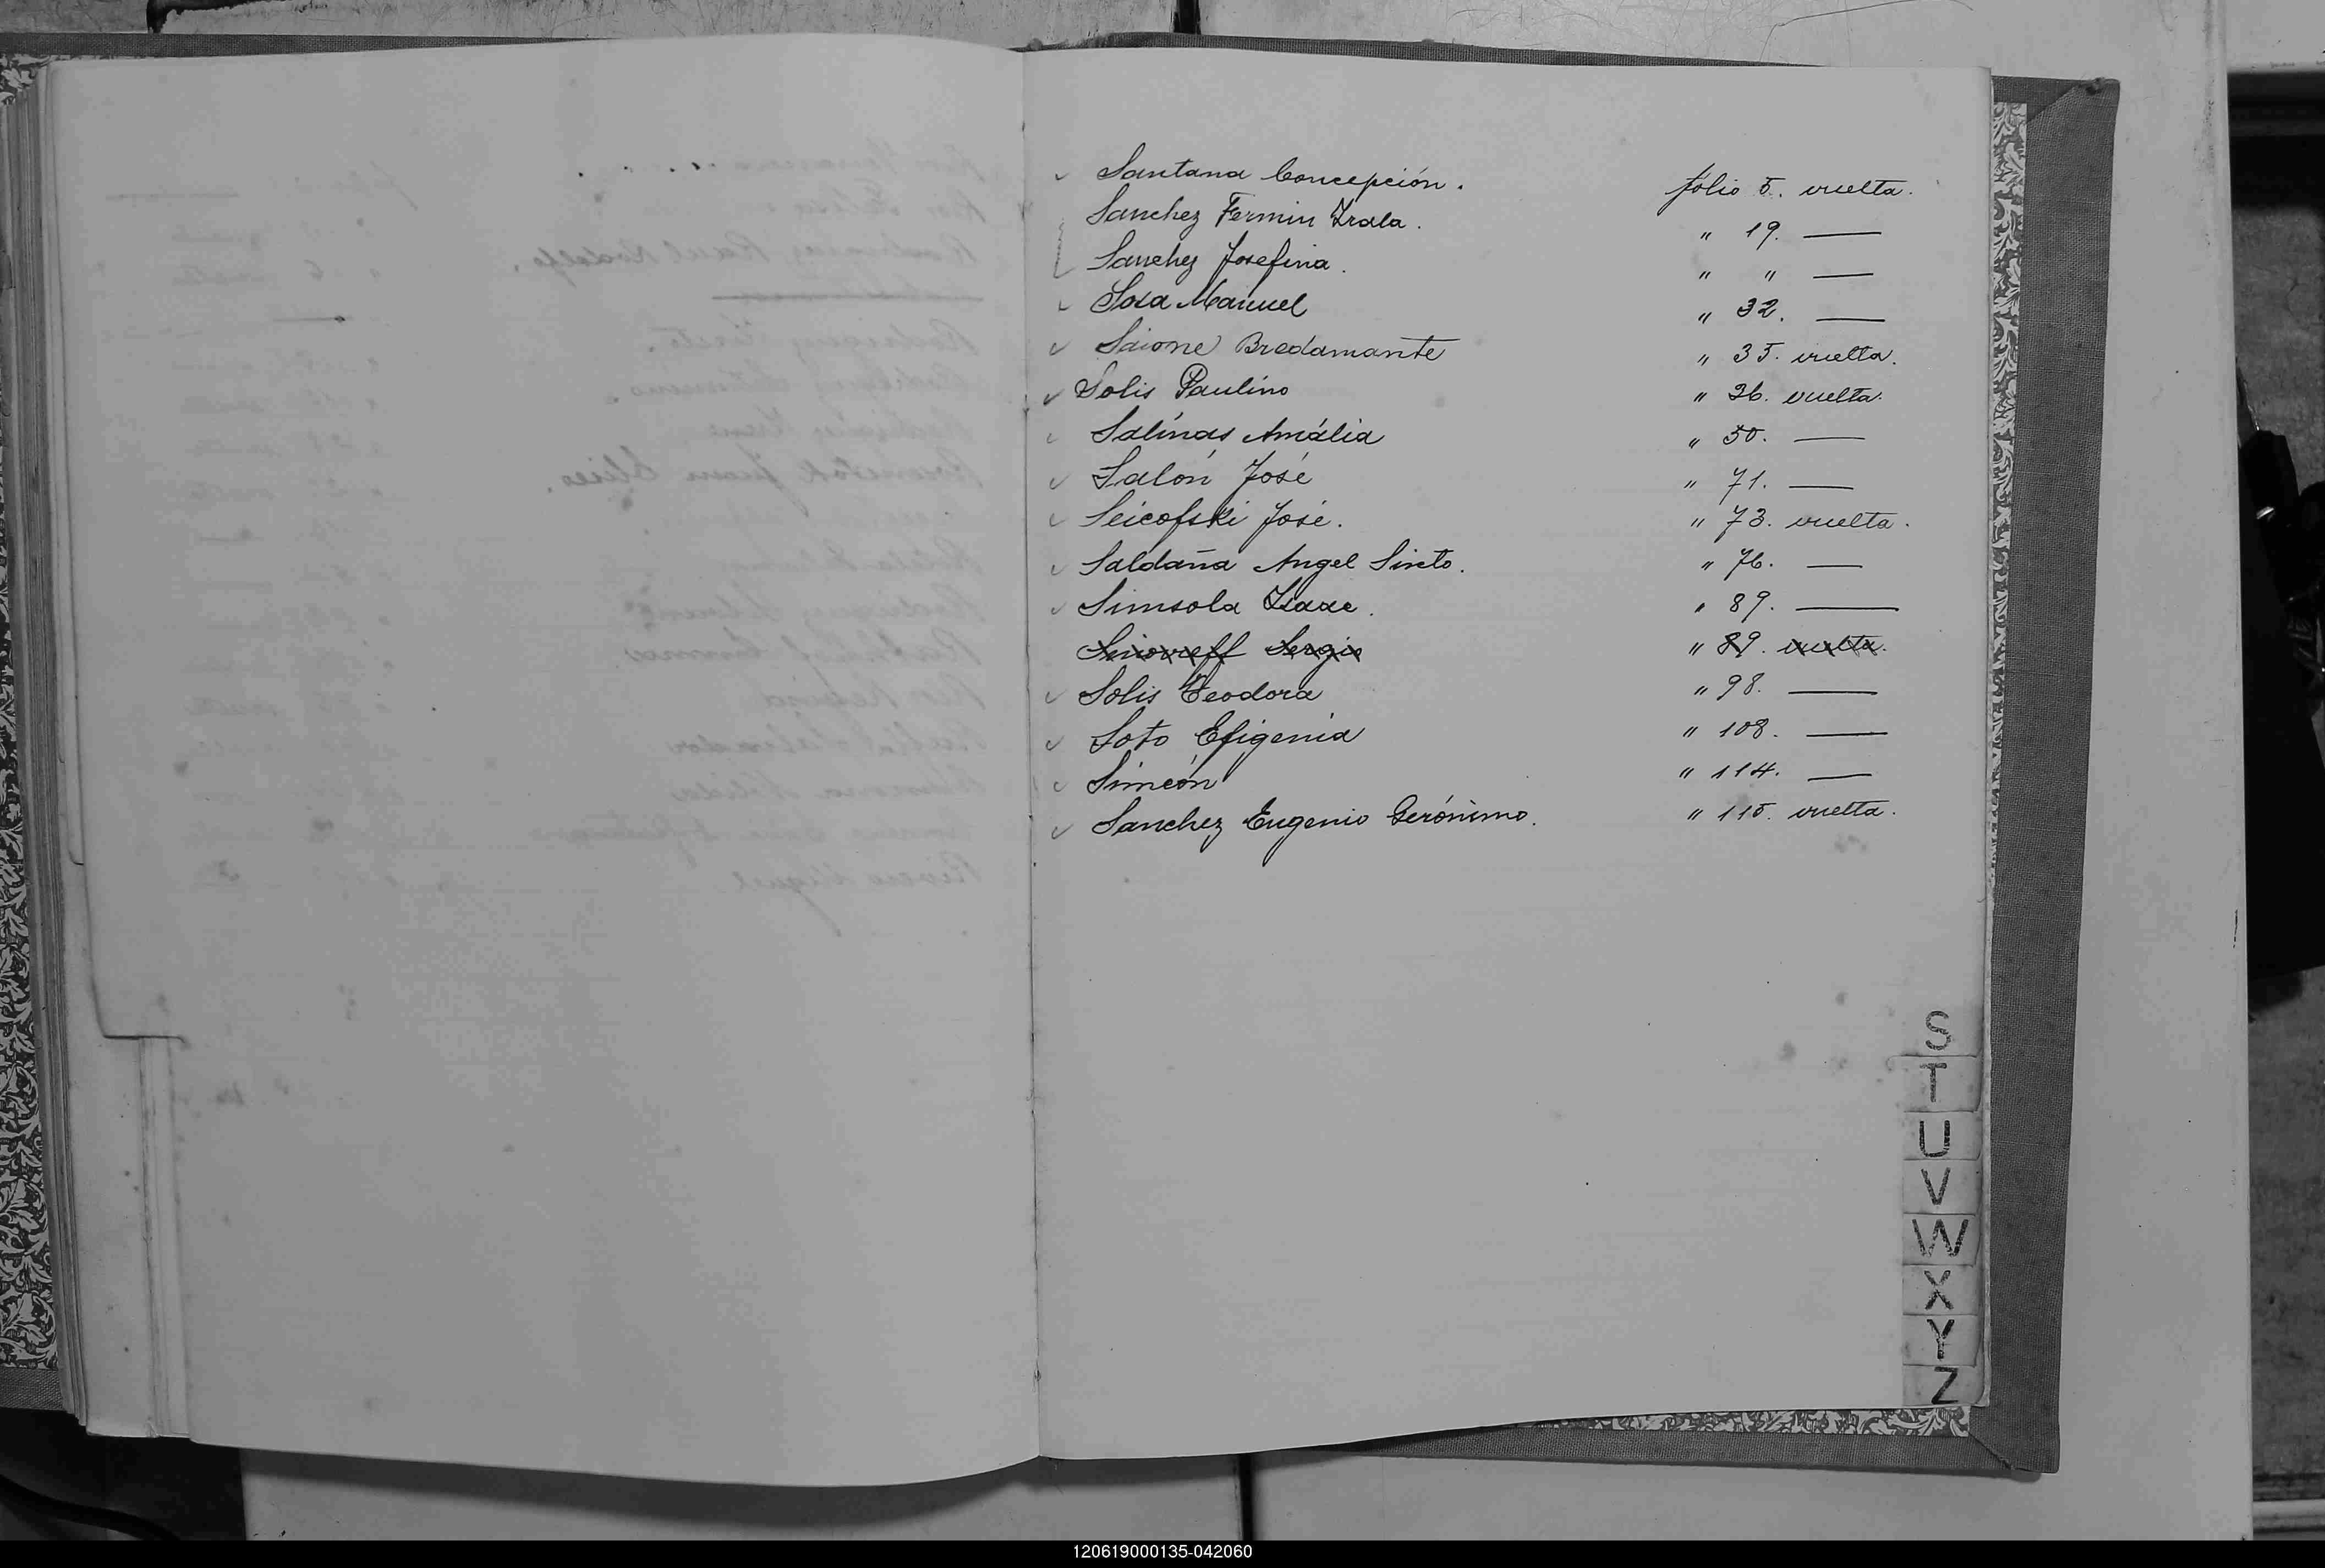 Santana Concepción. folio 5. vuelta.
Sanchez Fermin Irala. " 19. —
Sanchez Josefina. " " —
Sosa Manuel " 32. —
Saione Bredamante " 35. vuelta.
Solis Paulino " 36. vuelta.
Salinas Amália " 50. —
Salón José " 71. —
Seicofski José. " 73. vuelta.
Saldaña Angel Sixto. " 76. —
Simsola Isaac. " 89. —
Sergio " 89. vuelta.
Solis Teodora " 98. —
Soto Efigenia " 108. —
Simeón " 114. —
Sanchez Eugenio Gerónimo. " 115. vuelta.
S
T
U
V
W
X
Y
Z
120619000135-042060